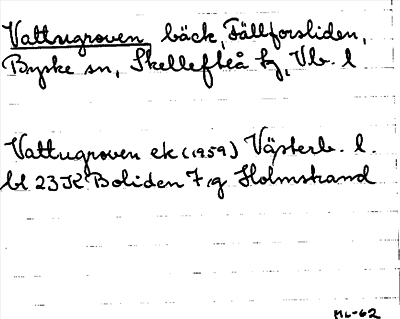 Vattugroven, bäck, Fällforsliden,
Byske sn, Skellefteå tg, Vb. l
Vattugroven ek (1959) Västerb. l.
bl 23 K Boliden 7, g Holmstrand
ML-62